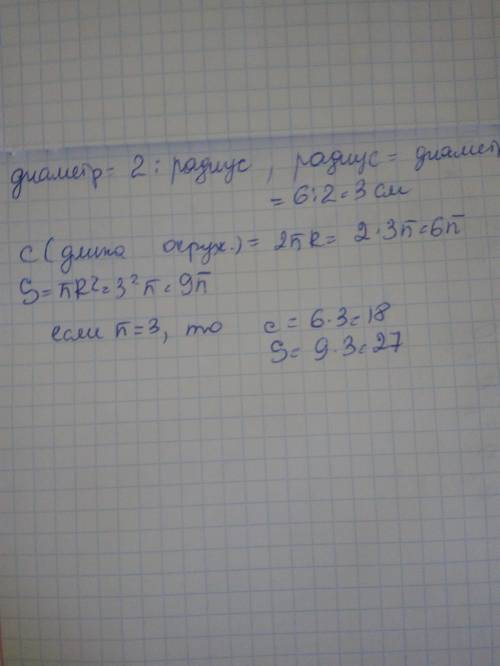 диаметр = 2 : радиус, радиус = диаметр
= 6:2=3 см
C (длина окруж.) = 2πR = 2·3π=6π
S=πR²=3²π=9π
если π=3, то c = 6·3=18
S= 9·3=27